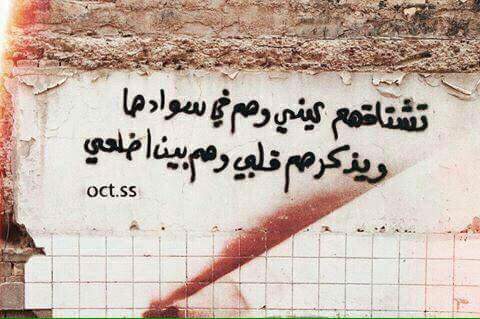 تشتاقهم عيني وهم في سوادها
ويذكرهم قلبي وهم بين اضلعي
oct.ss